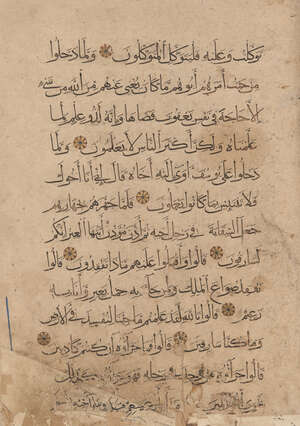 توكلت وعليه فليتوكل المتوكلون ۝ ولما دخلوا
من حيث أمرهم أبوهم ما كان يغني عنهم من الله من شيء
إلا حاجة في نفس يعقوب قضاها وإنه لذو علم لما
علمناه ولكن أكثر الناس لا يعلمون ۝ ولما
دخلوا على يوسف آوى إليه أخاه قال إني أنا أخوك
فلا تبتئس بما كانوا يعملون ۝ فلما جهزهم بجهازهم
جعل السقاية في رحل أخيه ثم أذن مؤذن أيتها العير إنكم
لسارقون ۝ قالوا وأقبلوا عليهم ماذا تفقدون ۝ قالوا
نفقد صواع الملك ولمن جاء به حمل بعير وأنا به
زعيم ۝ قالوا تالله لقد علمتم ما جئنا لنفسد في الأرض
وما كنا سارقين ۝ قالوا فما جزاؤه إن كنتم كاذبين
قالوا جزاؤه من وجد في رحله فهو جزاؤه كذلك
نجزي الظالمين